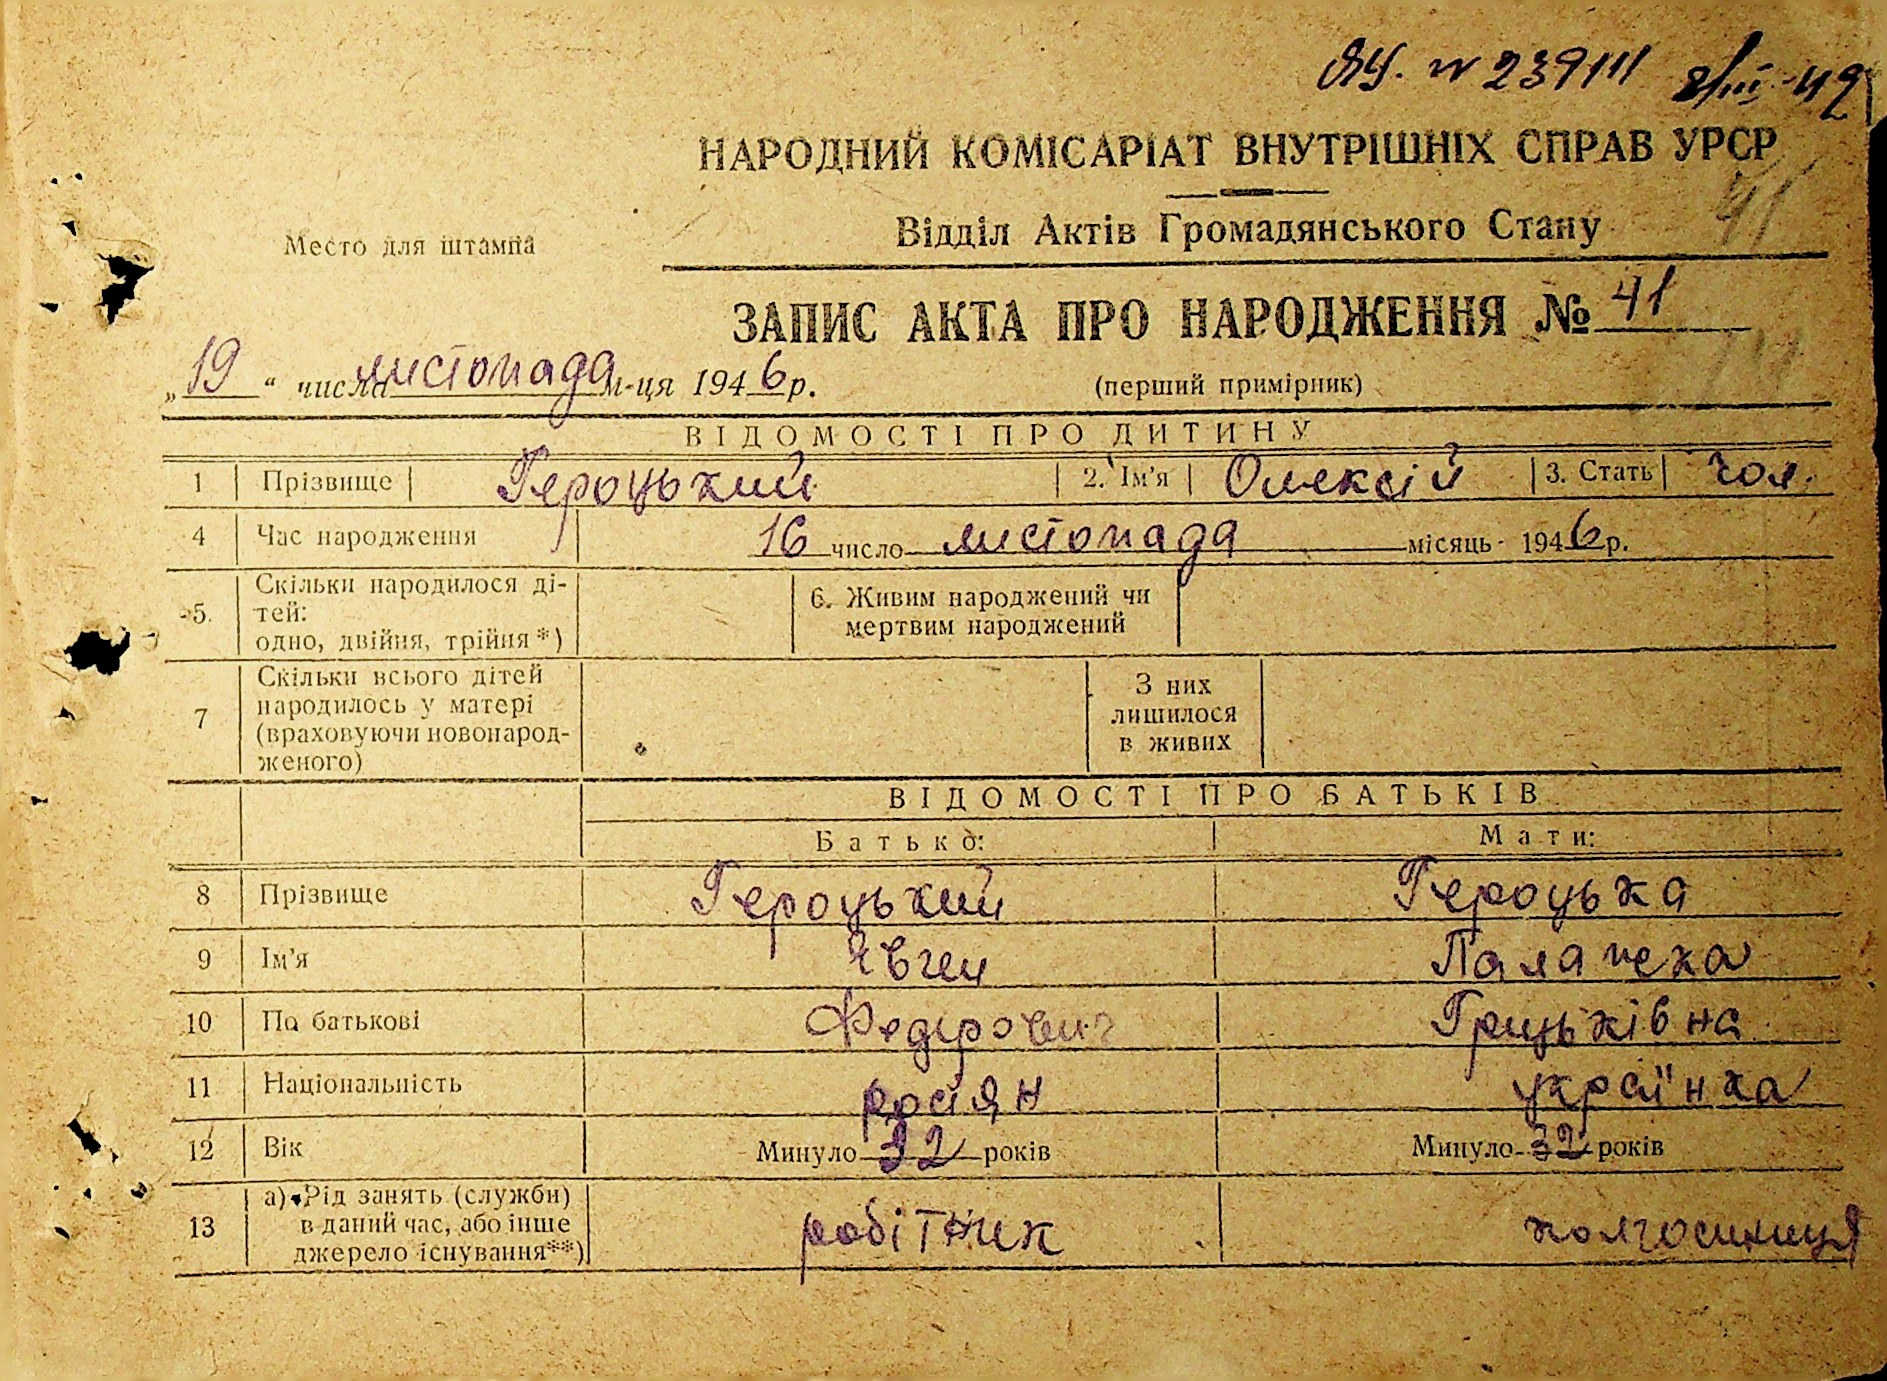 ЯУ. № 239111 8/III-49
НАРОДНИЙ КОМІСАРІАТ ВНУТРІШНІХ СПРАВ УРСР
41
Відділ Актів Громадянського Стану
Место для штампа
ЗАПИС АКТА ПРО НАРОДЖЕННЯ № 41
„19“ числа листопада м-ця 1946 р. (перший примірник)
ВІДОМОСТІ ПРО ДИТИНУ
1 Прізвище Героцький 2. Ім'я Олексій 3. Стать чол.
4 Час народження 16 число листопада місяць 1946 р.
5. Скільки народилося ді-
тей:
одно, двійня, трійня*)
6. Живим народжений чи
мертвим народжений
7 Скільки всього дітей
народилось у матері
(враховуючи новонарод-
женого)
З них
лишилося
в живих
ВІДОМОСТІ ПРО БАТЬКІВ
Батько: Мати:
8 Прізвище Героцький Героцька
9 Ім'я Євген Палажка
10 По батькові Федорович Грицьківна
11 Національність росіян українка
12 Вік Минуло 32 років Минуло 32 років
13 а) Рід занять (служби)
в даний час, або інше
джерело існування**)
робітник колгоспниця